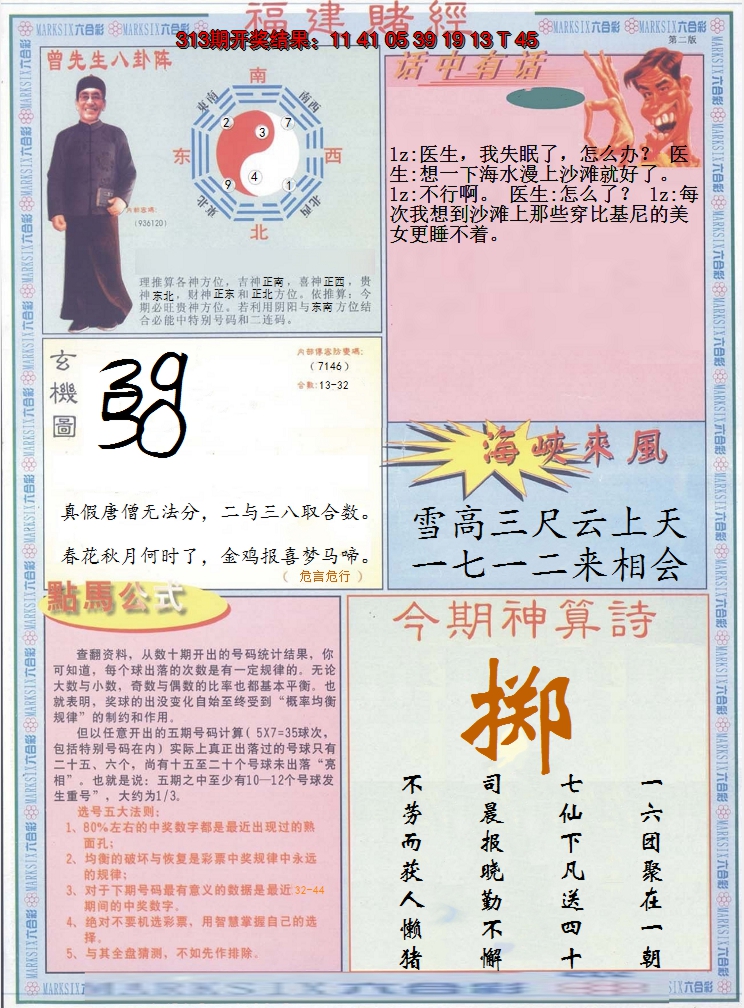 福建賭經
313期开奖结果：11 41 05 39 19 13 T 45
第二版
MARKSIX六合彩
曾先生八卦阵
南
東南
南西
2
3
7
东
西
9
4
1
東北
北西
北
內部密碼:
(936120)
理推算各神方位，吉神正南，喜神正西，贵
神东北，财神正东和正北方位。依推算：今
期必旺贵神方位。若利用阴阳与东南方位结
合必能中特别号码和二连码。
话中有话
lz:医生，我失眠了，怎么办？ 医
生:想一下海水漫上沙滩就好了。
lz:不行啊。 医生:怎么了？ lz:每
次我想到沙滩上那些穿比基尼的美
女更睡不着。
玄機圖
（7146）
合数:13-32
真假唐僧无法分，二与三八取合数。
春花秋月何时了，金鸡报喜梦马啼。
（ 危言危行 ）
海峽來風
雪高三尺云上天
一七一二来相会
點馬公式
查翻资料，从数十期开出的号码统计结果，你
可知道，每个球出落的次数是有一定规律的。无论
大数与小数，奇数与偶数的比率也都基本平衡。也
就表明，奖球的出没变化自始至终受到“概率均衡
规律”的制约和作用。
但以任意开出的五期号码计算( 5X7=35球次，
包括特别号码在内) 实际上真正出落过的号球只有
二十五、六个，尚有十五至二十个号球未出落“亮
相”。也就是说：五期之中至少有10—12个号球发
生重号”，大约为1/3。
选号五大法则：
1、80%左右的中奖数字都是最近出现过的熟
面孔；
2、均衡的破坏与恢复是彩票中奖规律中永远
的规律；
3、对于下期号码最有意义的数据是最近32-44
期间的中奖数字。
4、绝对不要机选彩票，用智慧掌握自己的选
择。
5、与其全盘猜测，不如先作排除。
今期神算詩
掷
一六团聚在一朝
七仙下凡送四十
司晨报晓勤不懈
不劳而获人懒猪